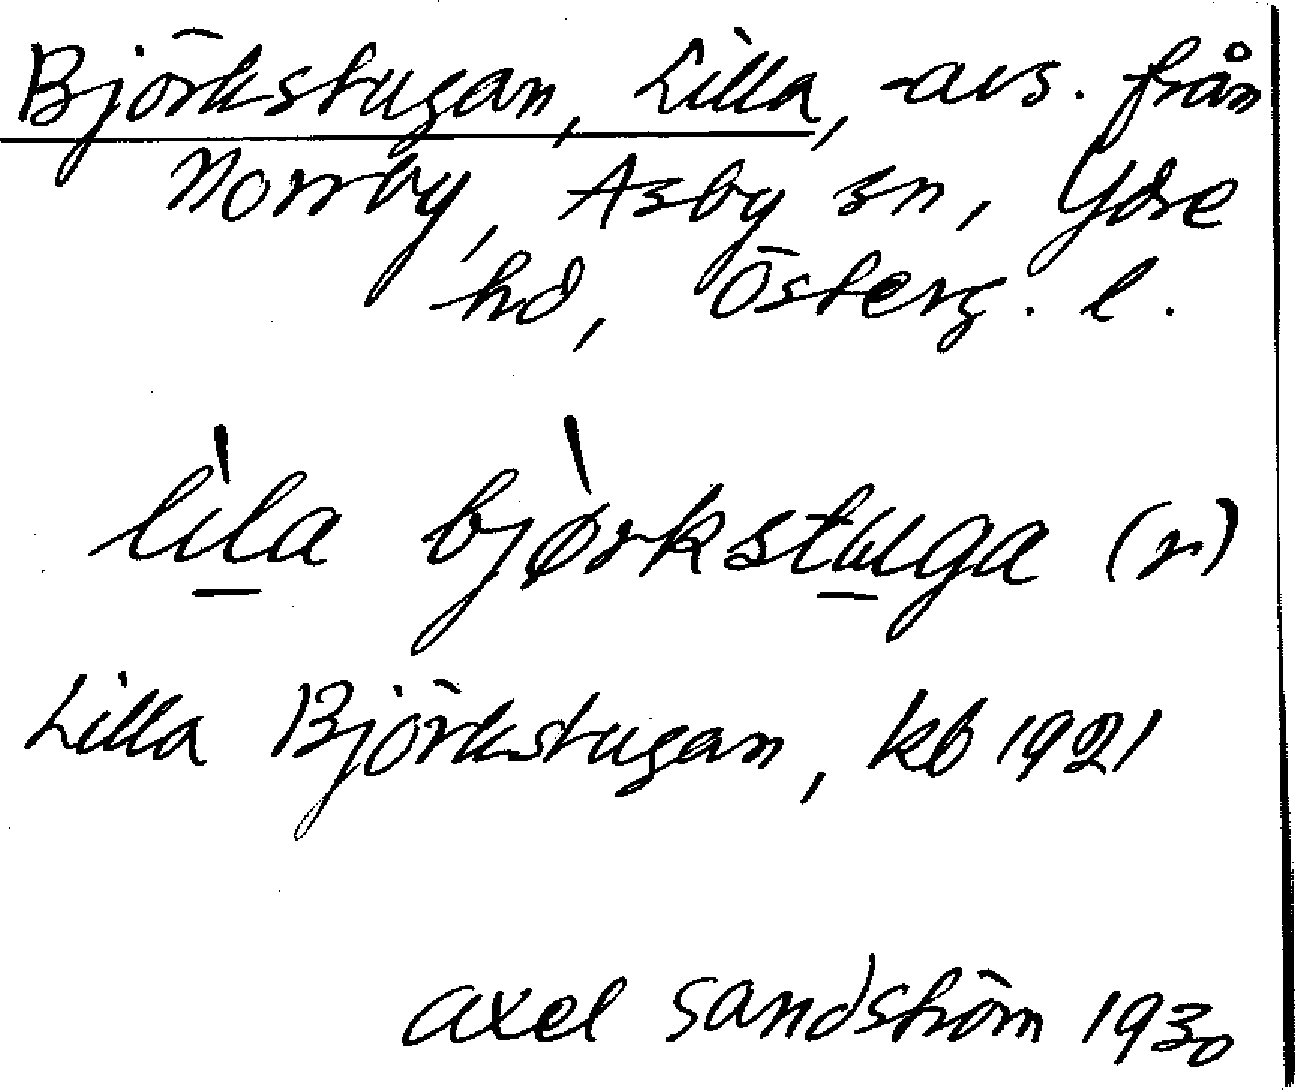 Björkstugan, Lilla, avs. från
Norrby, Asby sn, Ydre
hd, Österg. l.
lìla bjø̀rkstuga (n)
Lilla Björkstugan, kb 1921
Axel Sandström 1930